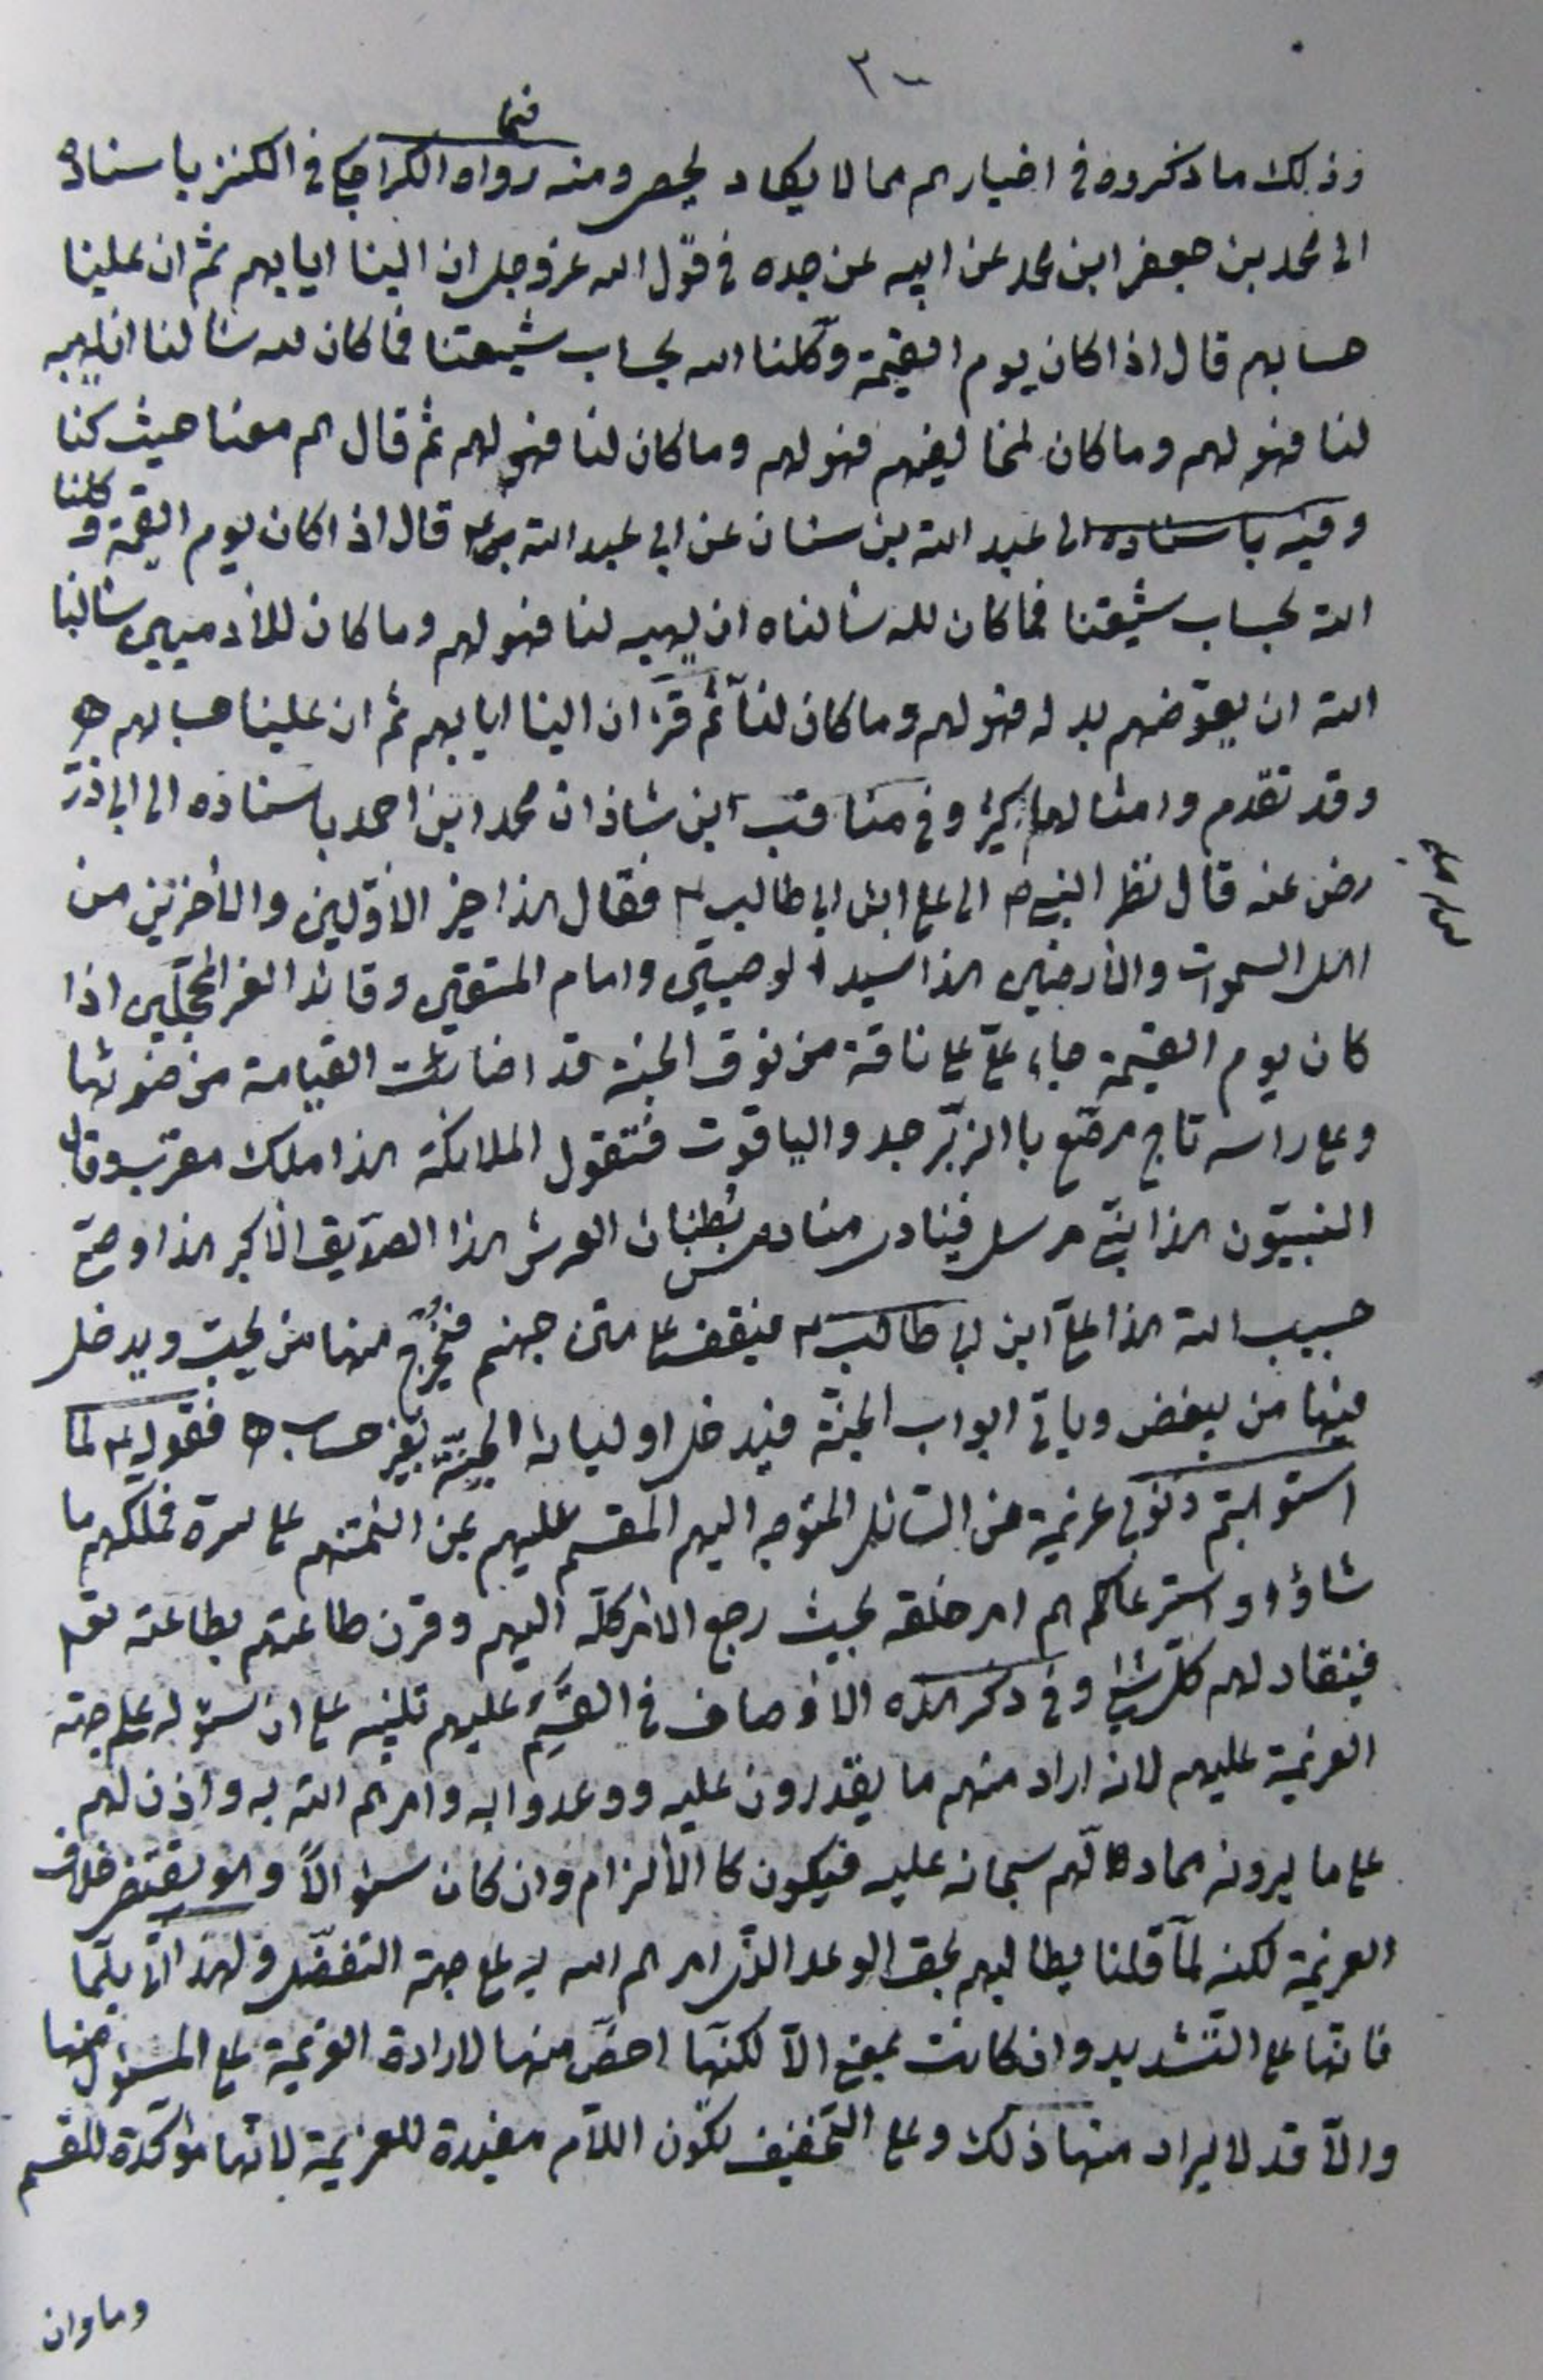 ٣٠٠
وذلك ما ذكروه في اخبارهم مما لا يكاد يحصر ومنه فيما رواه الكراجكي في الكنز باسناده
الى محمد بن جعفر ابن محمد عن ابيه عن جده في قول الله عز وجل ان الينا ايابهم ثم ان علينا
حسابهم قال اذا كان يوم القيمة وكلنا الله بحساب شيعتنا فما كان لله سألنا ان يهبه
لنا فهو لهم وما كان لمخالفيهم فهو لهم وما كان لنا فهو لهم ثم قال هم معنا حيث كنا
وفيه باسناده الى عبد الله بن سنان عن ابي عبد الله قال اذا كان يوم القيمة وكلنا
الله بحساب شيعتنا فما كان لله سألناه ان يهبه لنا فهو لهم وما كان للآدميين سألنا
الله ان يعوّضهم بدله فهو لهم وما كان لنا ثم قرء ان الينا ايابهم ثم ان علينا حسابهم ه
وقد تقدّم وامثالها كثير وفي مناقب ابن شاذان محمد ابن احمد باسناده الى ابي ذرّ
رض عنه قال نظر النبي ص الى علي ابن ابي طالب ع فقال هذا خير الاوّلين والآخرين من
اهل السموات والارضين هذا سيد الوصيين وامام المتقين وقائد الغر المحجّلين اذا
كان يوم القيمة جاء علي على ناقة من نوق الجنة قد اضائت القيامة من ضوئها
وعلى راسه تاج مرصّع باالزبّرجد والياقوت فتقول الملائكة هذا ملك مقرّب وقال
النبيّون هذا نبيّ مرسل فينادى مناد من بطنان العرش هذا الصدّيق الاكبر هذا وصيّ
حبيب الله هذا عليّ ابن ابي طالب ع فيقف على متن جهنم فيخرج منها من يحبّ ويدخل
فيها من يبغض وياتى ابواب الجنّة فيدخل اوليائه الجنّة بغير حساب ه فقوله ع لمّا
استوهبتم ذنوبى عزيمة من السّائل المتوجه اليهم المقسم عليهم بمن ائتمنهم على سرّه فملكهم ما
شاؤا واسترعاكم هم امر خلقه بحيث رجع الامر كلّه اليهم وقرن طاعتهم بطاعته تع
فينقاد لهم كلّ شئ وفي ذكر هذه الاوصاف في القسم عليهم تنبيه على ان سئوله على جهة
العزيمة عليهم لانه اراد منهم ما يقدرون عليه ووعدوا به وامرهم الله به واذن لهم
على ما يرونه مما دلّهم سبحانه عليه فيكون كاالالزام وان كان سئوالاً وهو يقتضى خلاف
العزيمة لكنه لمّا قلنا يطالبهم بحق الوعد الذى امرهم الله به على جهة التفضّل ولهذا اتى بلمّا
فانها على التّشديد وان كانت بمعنى الاّ لكنّها اخصّ منها لارادة العزيمة على المسئول منها
والاّ قد لا يراد منها ذلك وعلى التّخفيف تكون اللاّم مفيدة للعزيمة لانها مؤكّدة للقسم
وما وان